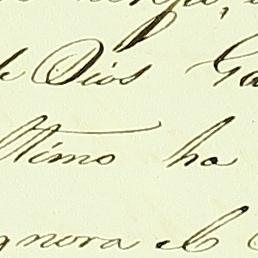 Dios Ga
ltimo ha
gnora el